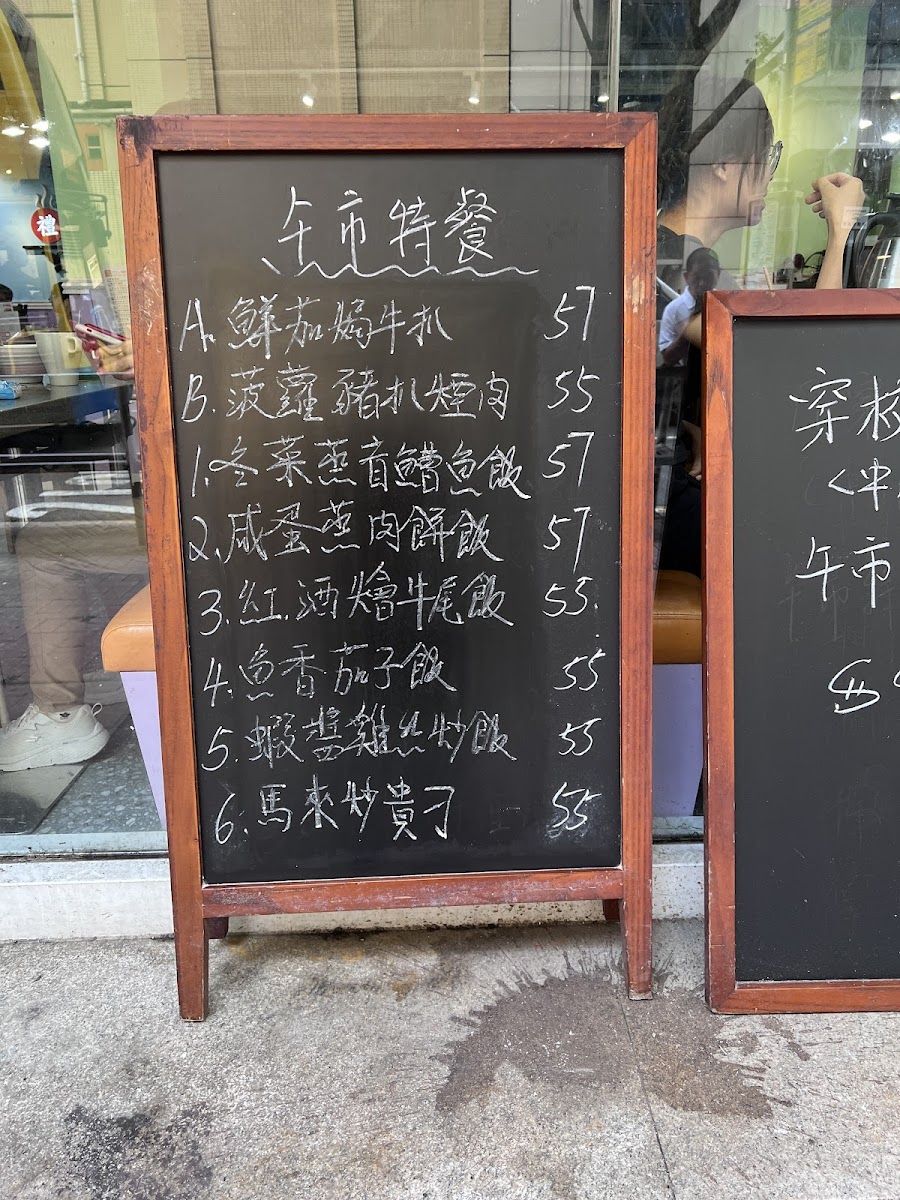 午市特餐
A. 鮮茄焗牛扒 57
B. 菠蘿豬扒煙肉 55
1. 冬菜蒸盲鰽魚飯 57
2. 咸蛋蒸肉餅飯 57
3. 紅酒燴牛尾飯 55.
4. 魚香茄子飯 55
5. 蝦醬雞絲炒飯 55
6. 馬來炒貴刁 55
禮
午市